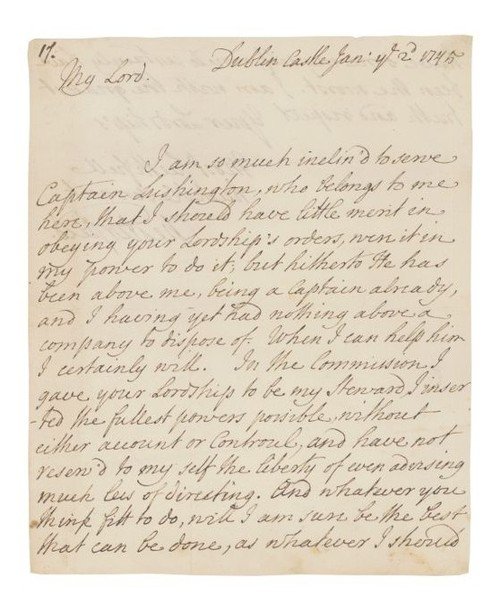 17.
Dublin Castle Jan: ye. 2d. 1745
My Lord.
I am so much inclin'd to serve
Captain Lushington, who belongs to me
here, that I should have little merit in
obeying your Lordship's orders, were it in
my power to do it; but hitherto He has
been above me, being a Captain already,
and I having yet had nothing above a
company to dispose of. When I can help him
I certainly will. In the Commission I
gave your Lordship to be my Steward, I inser
-ted the fullest powers possible, without
either account or Controul, and have not
reserv'd to my self the liberty of even advising
much less of directing. And whatever you
think fitt to do, will I am sure be the best
that can be done, as whatever I should